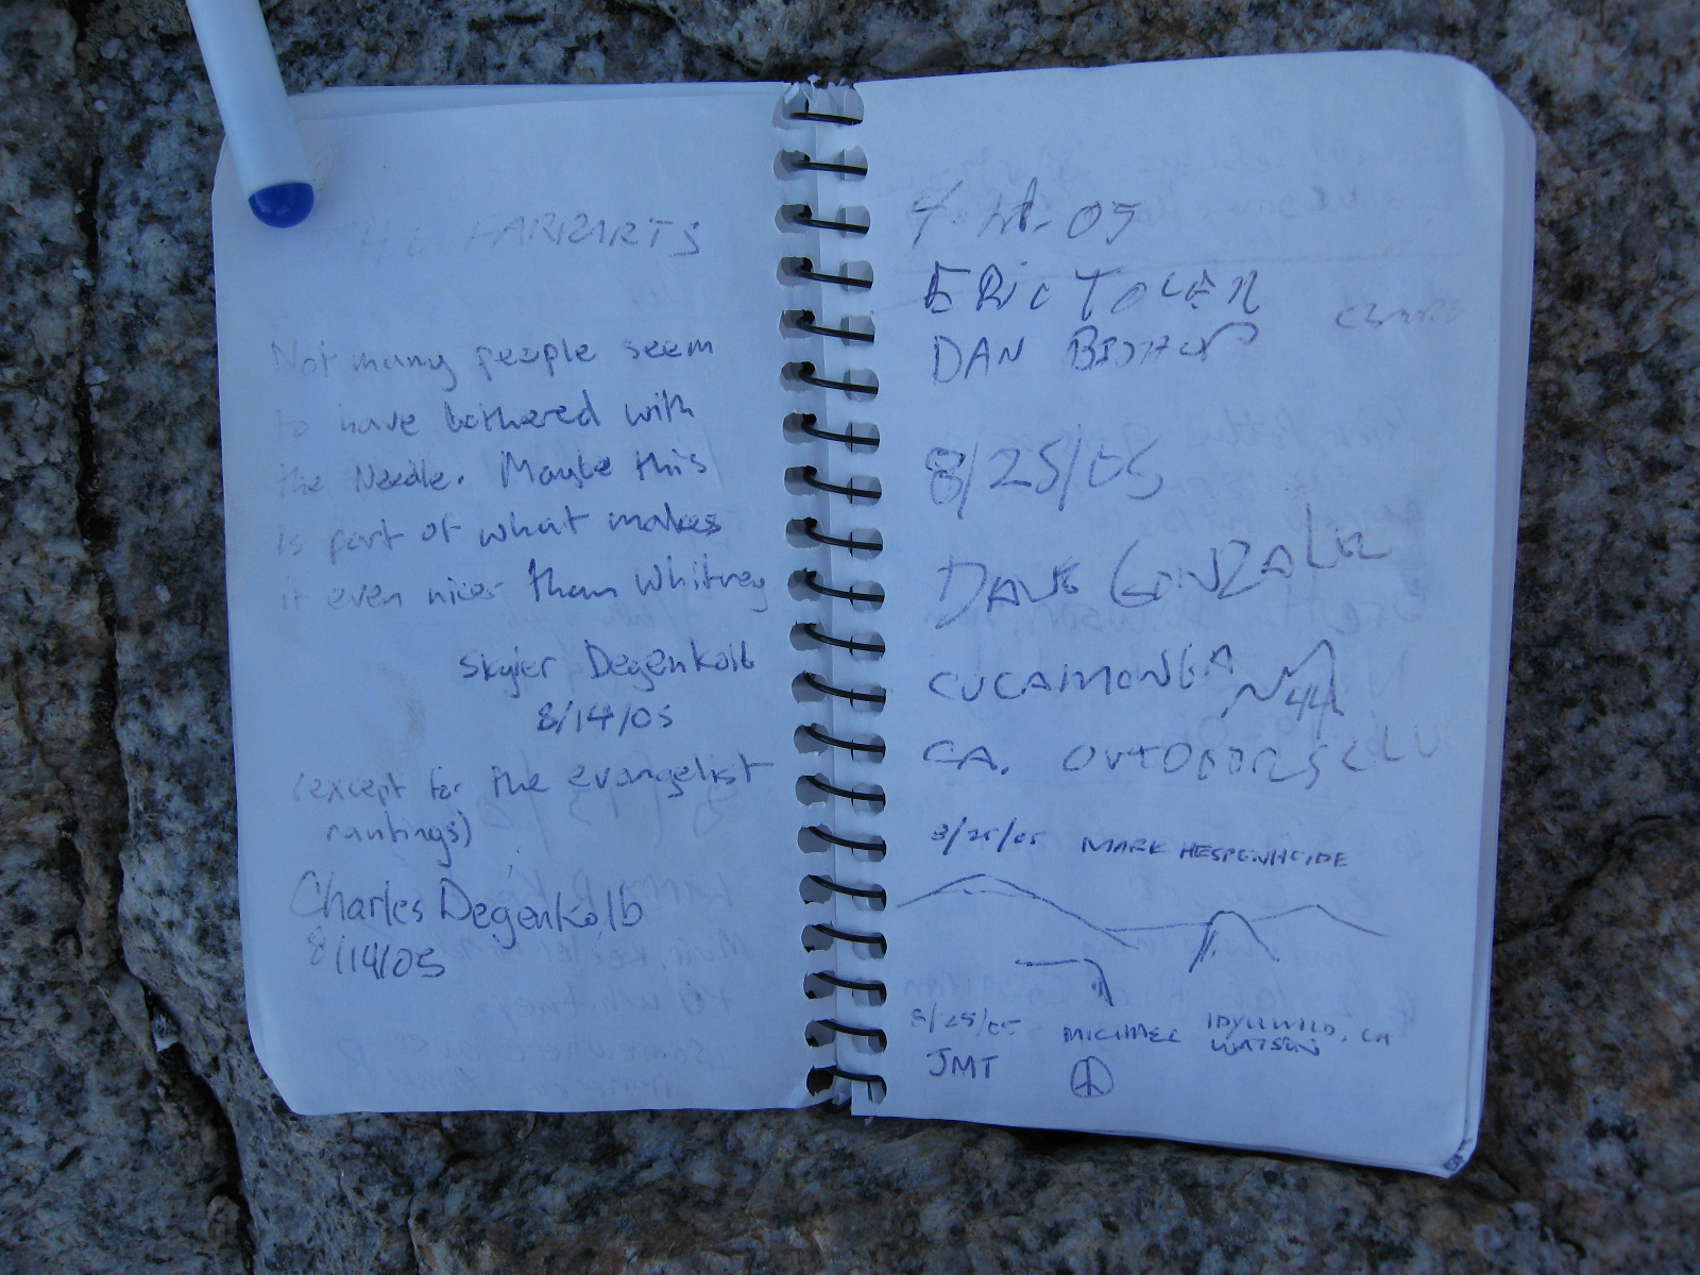 FARRARTS
Not many people seem
to have bothered with
the Needle. Maybe this
is part of what makes
it even nicer than Whitney
Skyler Degenkolb
8/14/05
(except for the evangelist
rantings)
Charles Degenkolb
8/14/05
ERIC TOLEN
DAN BISHOP
8/25/05
DAVE GONZALEZ
CUCAMONGA
CA. OUTDOORS CLU
8/25/05 MARK HESPENHEIDE
8/25/05 MICHAEL IDYLLWILD, CA
WATSON
JMT